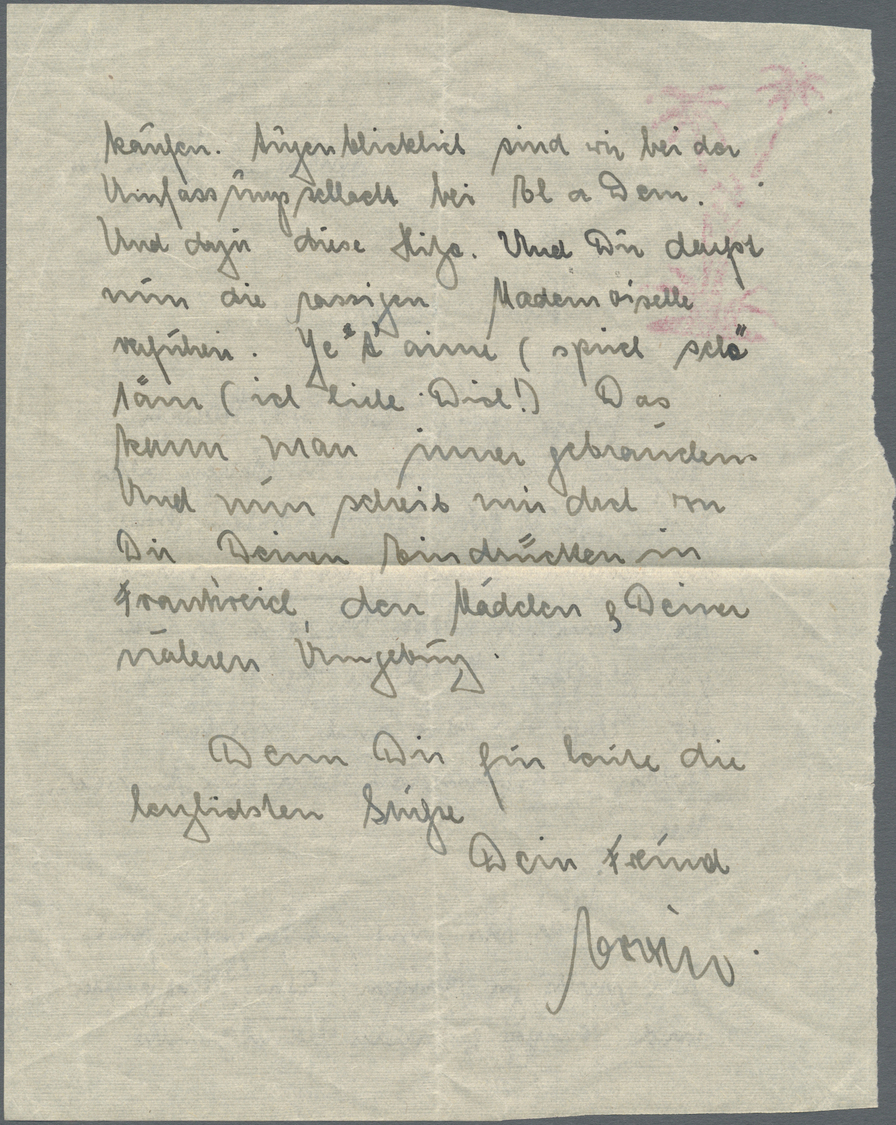 kaufen. Augenblicklich sind wir bei der
Umfassungsschlacht bei El a Dem.
Und dazu diese Hitze. Und Du darfst
nun die rassigen Mademoiselle
verführen. Je t'aime ( sprich schö
täm ( ich liebe Dich!) Das
kann man immer gebrauchen.
Und nun schreib mir doch von
Dir Deinen Eindrücken in
Frankreich, den Mädchen & Deiner
näheren Umgebung.
Denn Dir für heute die
herzlichsten Grüße
Dein Freund
Erwin.